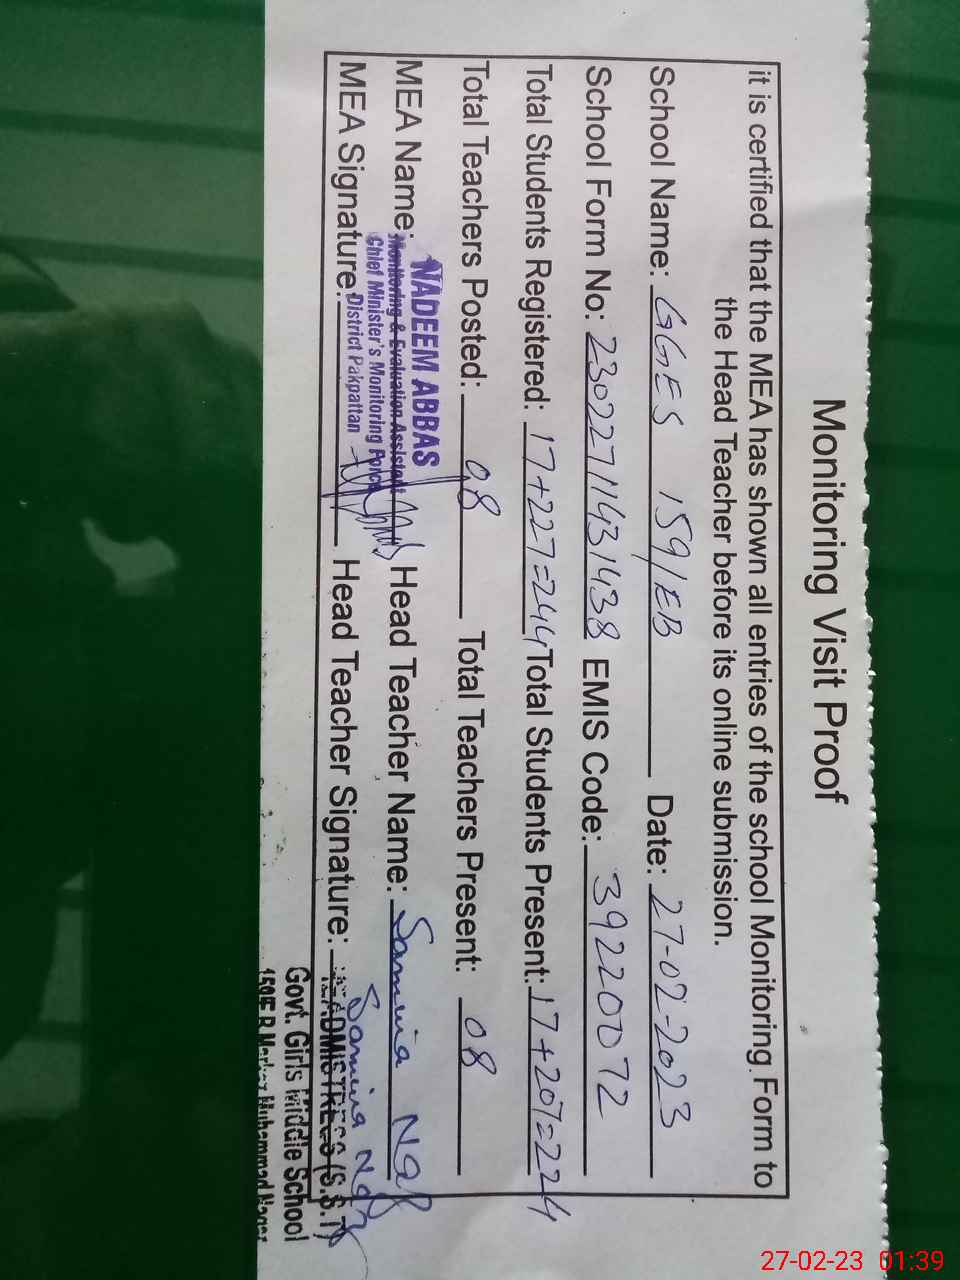 Monitoring Visit Proof
it is certified that the MEA has shown all entries of the school Monitoring Form to
the Head Teacher before its online submission.
School Name: GGES 159/EB Date: 27-02-2023
School Form No: 23022711431438 EMIS Code: 39220072
Total Students Registered: 17+227=244 Total Students Present: 17+207=224
Total Teachers Posted: 08 Total Teachers Present: 08
MEA Name: NADEEM ABBAS Head Teacher Name: Samina
Monitoring & Evaluation Assistant
Chief Minister's Monitoring Force
District Pakpattan
MEA Signature: Head Teacher Signature: Samina
HEADMISTRESS (S.S.T)
Govt. Girls Middle School
Muhammad Nagar
27-02-23 01:39